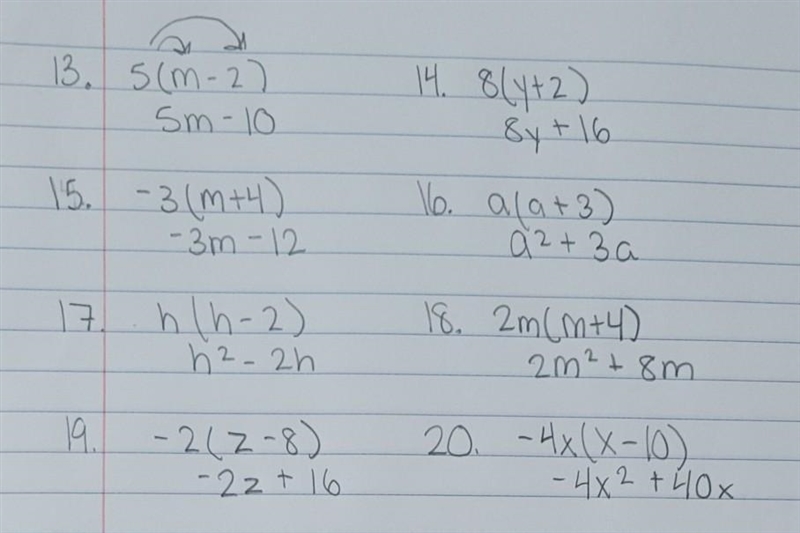 13. 5(m-2) 14. 8(y+2)
5m-10 8y+16
15. -3(m+4) 16. a(a+3)
-3m-12 a²+3a
17. h(h-2) 18. 2m(m+4)
h²-2h 2m²+8m
19. -2(z-8) 20. -4x(x-10)
-2z+16 -4x²+40x